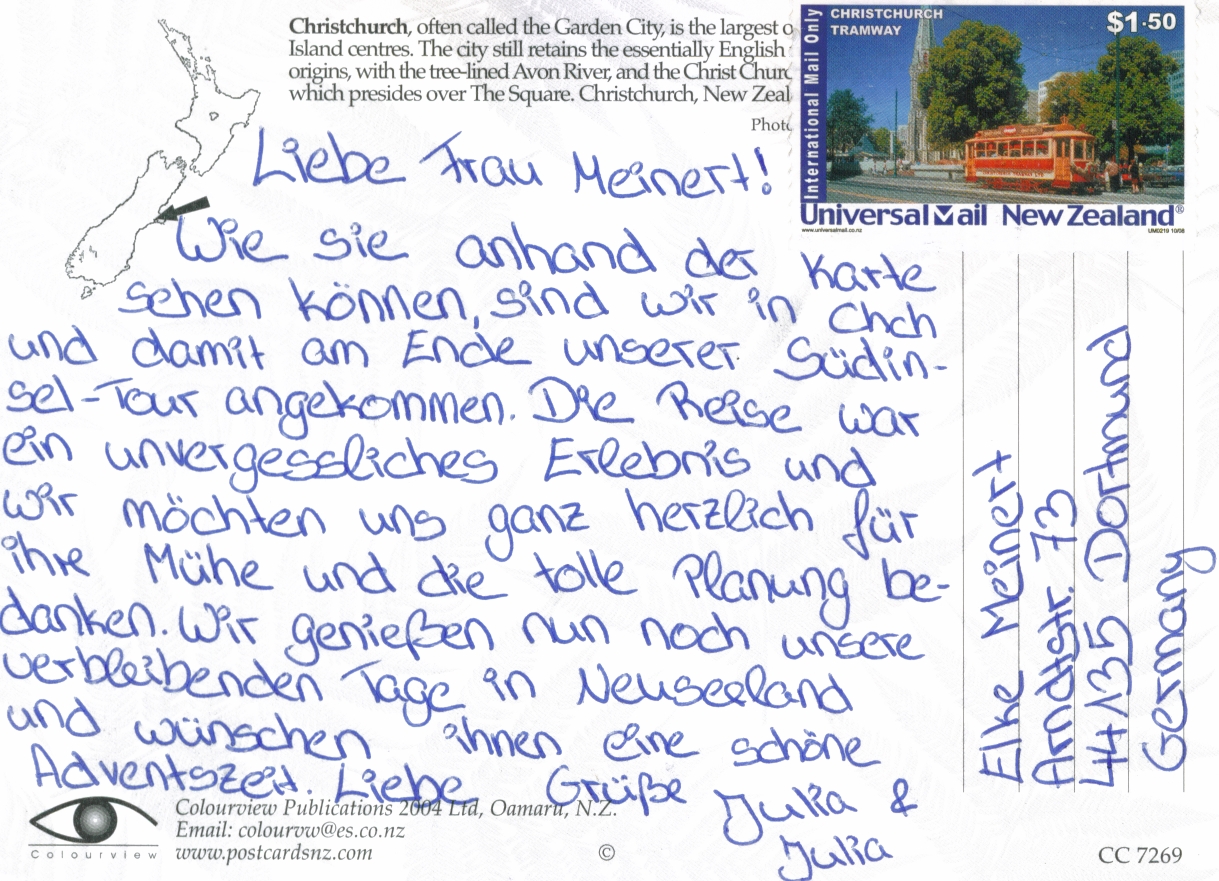 Christchurch, often called the Garden City, is the largest o
Island centres. The city still retains the essentially English
origins, with the tree-lined Avon River, and the Christ Churc
which presides over The Square. Christchurch, New Zeal
Photo
CHRISTCHURCH
TRAMWAY
$1.50
International Mail Only
Universal Mail New Zealand®
www.universalmail.co.nz
UM0219 10/08
Liebe Frau Meinert!
Wie sie anhand der Karte
sehen können, sind wir in Chch
und damit am Ende unserer Südin-
sel-Tour angekommen. Die Reise war
ein unvergessliches Erlebnis und
wir möchten uns ganz herzlich für
ihre Mühe und die tolle Planung be-
danken. Wir genießen nun noch unsere
verbleibenden Tage in Neuseeland
und wünschen ihnen eine schöne
Adventszeit. Liebe Grüße Julia &
Julia
Elke Meinert
Arndtstr. 73
44135 Dortmund
Germany
Colourview
Colourview Publications 2004 Ltd, Oamaru, N.Z.
Email: colourvw@es.co.nz
www.postcardsnz.com
©
CC 7269